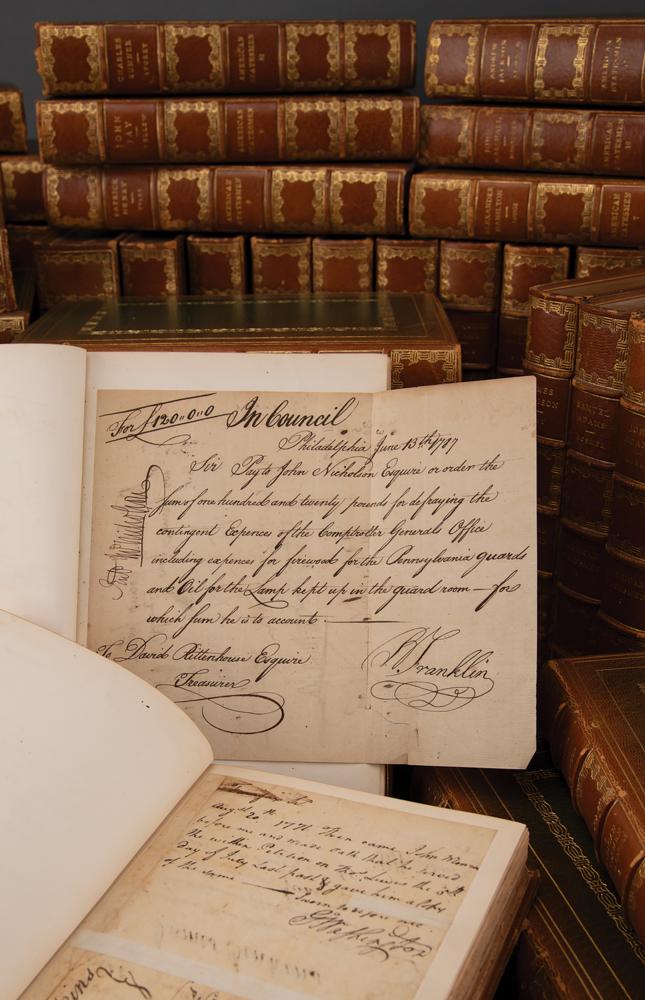 CHARLES SUMNER
AMERICAN STATESMEN
JOHN JAY
AMERICAN STATESMEN
AMERICAN STATESMEN
PATRICK HENRY
AMERICAN STATESMEN
AMERICAN STATESMEN
ALEXANDER HAMILTON
AMERICAN STATESMEN
7
SAMUEL ADAMS
For £120..0..0 In Council
Philadelphia June 13th 1787
Sir Pay to John Nicholson Esquire or order the
sum of one hundred and twenty pounds for defraying the
contingent Expences of the Comptroller Generals Office
including expences for firewood for the Pennsylvania guards
and Oil for the Lamp kept up in the guard room — for
which sum he is to account.
To David Rittenhouse Esquire
Treasurer
B Franklin
Jno Nicholson
Augst. 20th 1771. Then came John
before me and made Oath that he served
the within Petition on the
day of July last past & gave him a Copy
of the same
Sworn to before me
GWashington